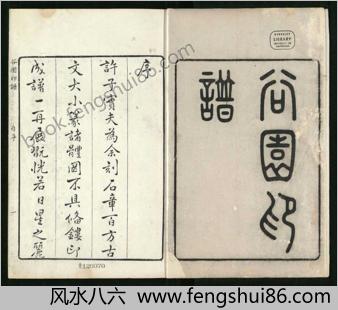 谷園印
譜
BERKELEY
LIBRARY
序
許子實夫為余刻石章百方古
文大小篆諸體罔不具備鏤印
成譜一再展翫恍若日星之麗
谷園印譜
自序
一
book.fengshui86.com
风水八六 www.fengshui86.com